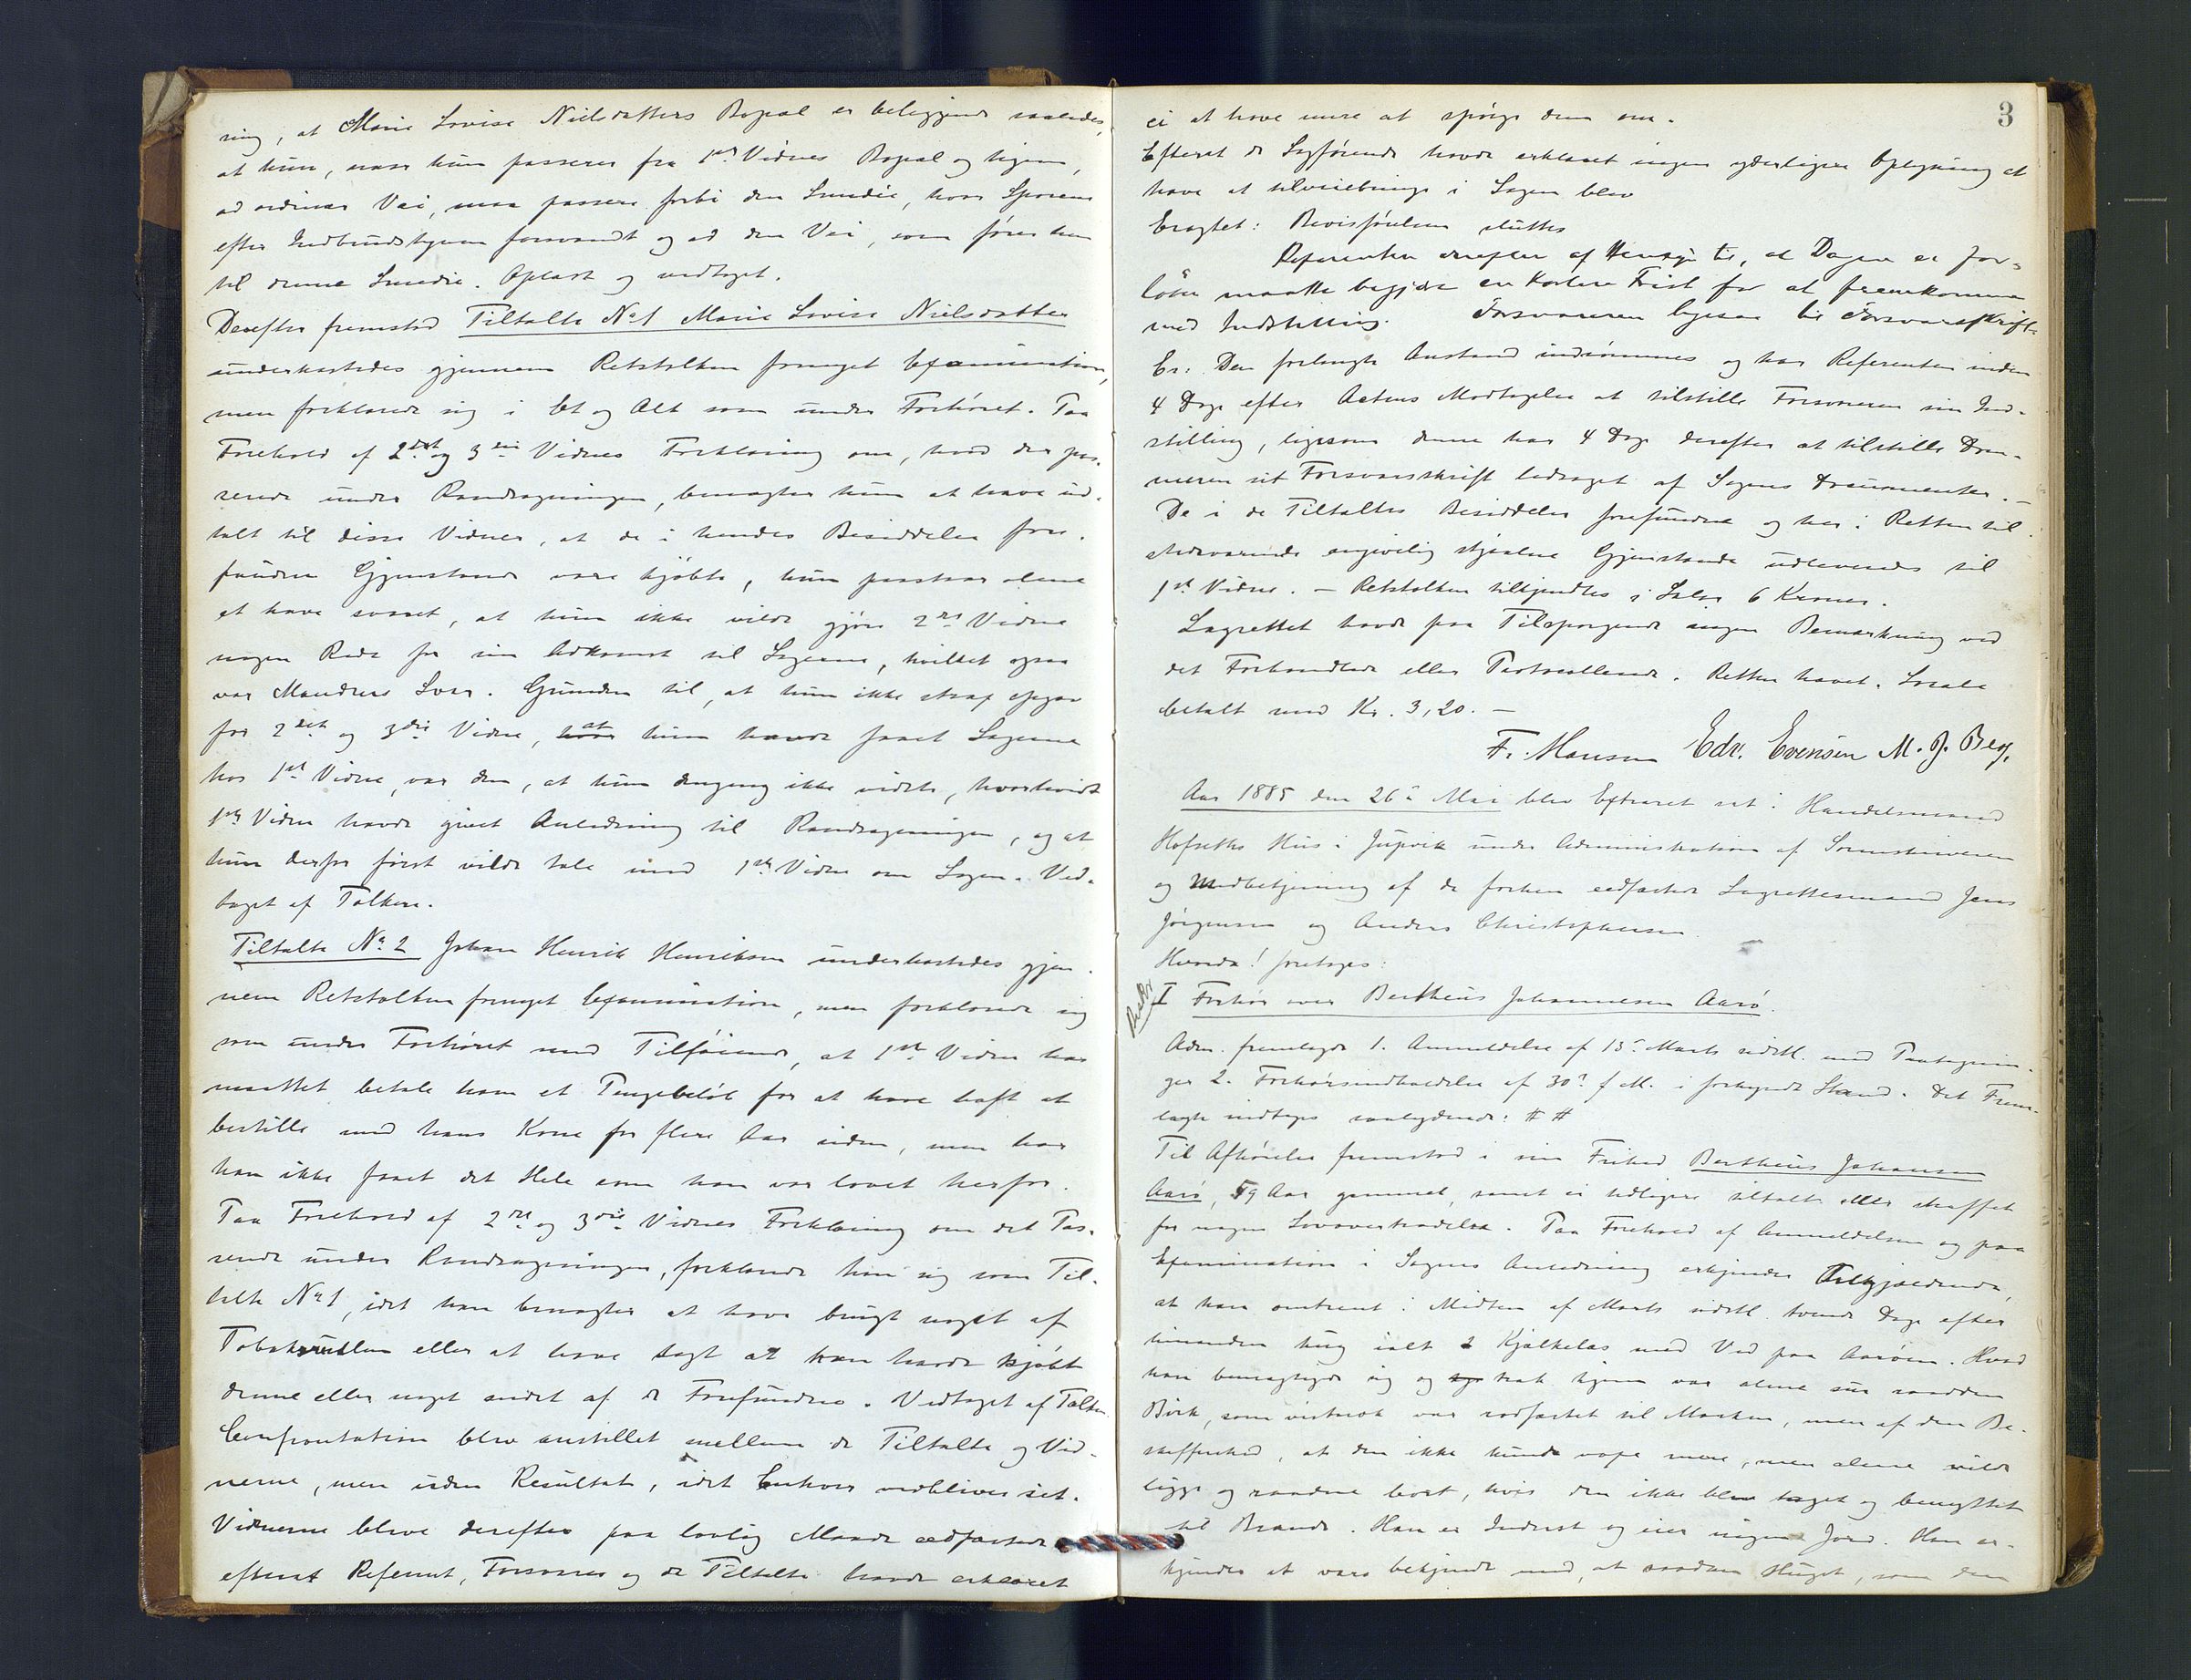 ning, at Marie Lovise Nielsdatters Bopæl er beliggende saaledes,
at hun, naar hun passerer fra 1ste Vidnes Bopæl og hjem,
ad ordinær Vei, maa passere forbi den Smedie, hvor Sporene
efter Indbrudstyven forsvandt og ad den Vei, som fører hen
til denne Smedie. Oplæst og vedtaget.
Derefter fremstod Tiltalte No 1 Marie Lovise Nielsdatter
underkastedes gjennem Retstolken fornyet Examination,
men forklarede sig i Et og Alt som under Forhøret. Paa
Forehold af 2det og 3die Vidnes Forklaring om, hvad der pas-
serede under Randsagningen, benægter hun at have ud-
talt til disse Vidner, at de i hendes Besiddelse fore-
fundne Gjenstande vare kjøbte, hun paastaar alene
at have svaret, at hun ikke vilde gjøre 2det Vidne
nogen Rede for sin Adkomst til Sagerne, hvilket ogsaa
var Mandens Svar. Grunden til, at hun ikke strax opgav
for 2det og 3die Vidne, at hun havde faaet Sagerne
hos 1ste Vidne, var den, at hun dengang ikke vidste, hvorvidt
1ste Vidne havde givet Anledning til Randsagningen, og at
hun derfor først vilde tale med 1ste Vidne om Sagen. Ved-
taget af Tolken.
Tiltalte No 2 Johan Henrik Henriksen underkastedes gjen-
nem Retstolken fornyet Examination, men forklarede sig
som under Forhøret med Tilføiende, at 1ste Vidne har
maattet betale ham et Pengebeløb for at have haft at
bestille med hans Kone for flere Aar siden, men har
han ikke faaet det Hele som han var lovet herfor.
Paa Forehold af 2det og 3die Vidnes Forklaring om det Pas-
serede under Randsagningen, forklarede han sig som Til-
talte No 1, idet han benægter at have brugt noget af
Tobaksrullen eller at have sagt at han havde kjøbt
denne eller noget andet af de Forefundne. Vedtaget af Tolken.
Confrontation blev anstillet mellem de Tiltalte og Vid-
nerne, men uden Resultat, idet Enhver vedbliver sit.
Vidnerne bleve derefter paa lovlig Maade edfæstede
efterat Referent, Forsvarer og de Tiltalte havde erklæret
3
ei at have mere at spørge dem om.
Efterat de Sagførende havde erklæret ingen yderligere Oplysning at
have at tilveiebringe i Sagen blev
Eragtet: Bevisførelsen sluttes
Referenten derefter af Hensyn til, at Dagen er for-
løben maatte begjære en kortere Frist for at fremkomme
med Indstilling. Forsvareren ligesaa til Forsvarsskrift.
Er: Den forlangte Anstand indrømmes og har Referenten inden
4 Dage efter Actens Modtagelse at tilstille Forsvareren sin Ind-
stilling, ligesom denne har 4 Dage derefter at tilstille Dom-
meren sit Forsvarsskrift ledsaget af Sagens Documenter. —
De i de Tiltaltes Besiddelse forefundne og her i Retten til-
stedeværende angivelig stjaalne Gjenstande udleveredes til
1ste Vidne. — Retstolken tilkjendtes i Salær 6 Kroner.
Lagrettet havde paa Tilspørgende ingen Bemærkning ved
det Forhandlede eller Protocollerede. Retten hævet. Locale
betalt med Kr. 3,20. —
F. Hansen Edv. Evensen M. J. Berg.
Aar 1885 den 26de Mai blev Extraret sat i Handelsmand
Hofseths Hus i Jupvik under Administration af Sorenskriveren
og Medbetjening af de forhen edfæstede Lagrettesmænd Jens
Jørgensen og Anders Christophersen.
Hvorda! foretoges:
I Forhør over Bertheus Johannesen Aarø.
Adm. fremlagde 1. Anmeldelse af 13de Marts sidstl. med Paategnin-
ger 2. Forhørsindkaldelse af 30te f. M. i forkyndt Stand. Det Frem-
lagte indtages saalydende: # #
Til Afhørelse fremstod i sin Frihed Bertheus Johansen
Aarø, 59 Aar gammel, samt ei tidligere tiltalt eller straffet
for nogen Lovovertrædelse. Paa Forehold af Anmeldelsen og paa
Examination i Sagens Anledning erkjender Vedkjommende,
at han omtrent i Midten af Marts sidstl. tvende Dage efter
hinanden hug ialt 2 Kjælkelæs med Ved paa Aarøen. Hvad
han bemægtigede sig og trak hjem var alene saadden
Birk, som vistnok var rodfæstet til Marken, men af den Be-
skaffenhed, at den ikke kunde voxe mere, men alene vilde
ligge og raadne bort, hvis den ikke blev taget og benyttet
til Brænde. Han er Inderst og eier ingen Jord. Han er-
kjender at være bekjendt med, at saadan Hugst, som den